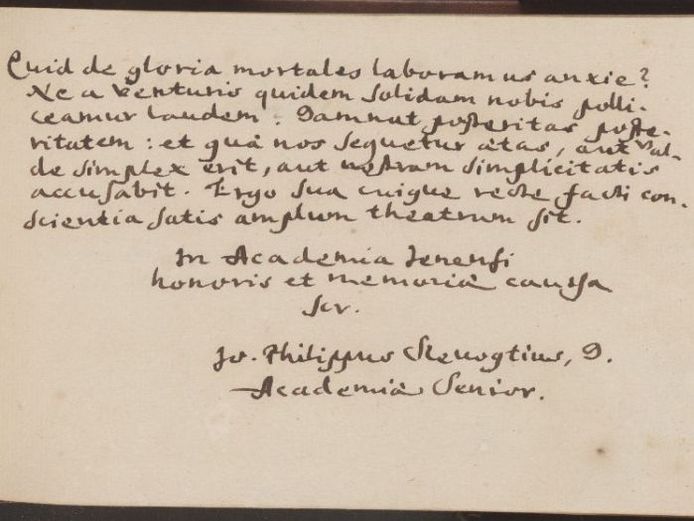 Quid de gloria mortales laboramus anxie?
Ne a venturis quidem solidam nobis polli-
ceamur laudem. Damnat posteritas poste-
ritatem: et quæ nos sequetur ætas, aut val-
de simplex erit, aut nostram simplicitatis
accusabit. Ergo sua cuique recte facti con-
scientia satis amplum theatrum sit.
In Academia Jenensi
honoris et memoriæ caussa
scr.
Jo. Philippus Slevogtius, D.
Academiæ Senior.